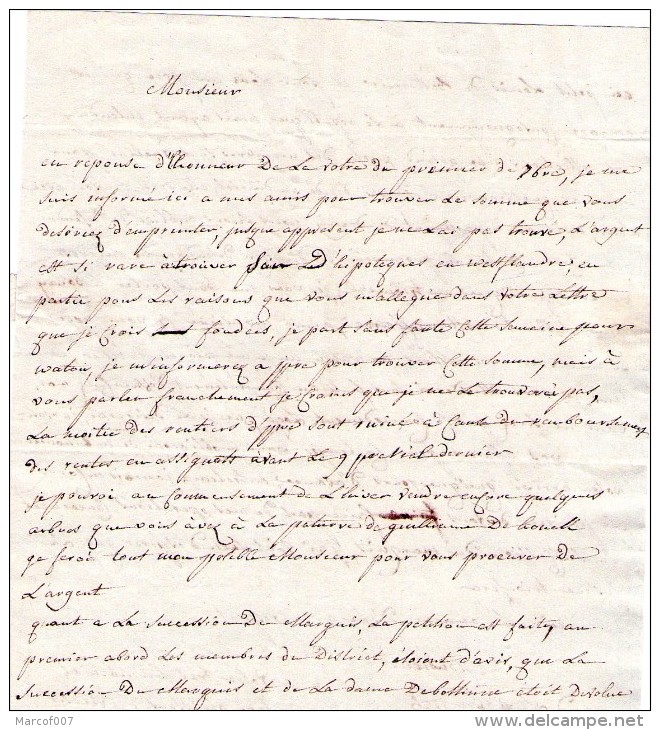 Monsieur
en reponse d'lhonneur de la votre du premier de 7bre, je me
suis informé ici a mes amis pour trouver le somme que vous
desériez d'emprunter, jusque appresent je ne l'ai pas trouvé, L'argent
est si rare a trouver sur des hipoteques en westflandre, en
partie pous les raisons que vous m'allegue dans votre lettre
que je crois fondées, je part sans faute cette semaine pour
watou, je m'informerez a jpre pour trouver cette somme, mais à
vous parler franchement je crains que je ne le trouverai pas,
la moitie des rentiers d'jpre sont ruiné à cause du remboursement
des rentes en assignats avant le 9 preirial dernier
je pouroi au commensement de l'hiver vendre encore quelques
arbres que vous avez à la paturre de guilliaume De
je feroi tout mon posible Monsieur pour vous procurer de
L'argent
quant a la succession de Marquis, la petition est faite, au
premier abord les membres du District, étoient d'avis, que la
succession du Marquis et de la dame étoit devolue
Marcof007